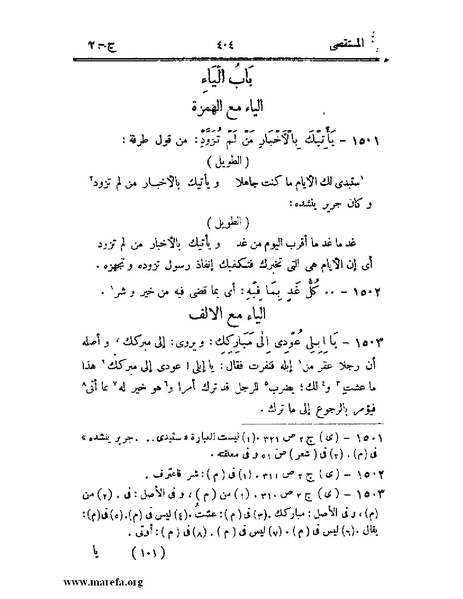 المستقصى ٤٠٤ ج - ٢
بَابُ الْيَاءِ
الياء مع الهمزة
١٥٠١ - يَأْتِيكَ بِالْأَخْبَارِ مَنْ لَمْ تُزَوَّدْ: من قول طرفة :
( الطويل )
ستبدى لك الأيام ما كنت جاهلا ويأتيك بالأخبـار من لم تزود
و كان جرير ينشده:
( الطويل )
غد ما غد ما أقرب اليوم من غد ويأتيك بالأخبار من لم تزود
أى إن الأيام هى التى تخبرك فتكفيك إنفاذ رسول تزوده و تجهزه .
١٥٠٢ - .. كُلُّ غَدٍ بِمَا فِيْهِ: أى بما قضى فيه من خير و شر ١ .
الياء مع الالف
١٥٠٣ - يَا إِبِلِى عُوْدِى إِلَى مَبَارِكِكِ: و يروى: إلى مبركك ، و أصله
أن رجلا عقر من ١ إبله فنفرت فقال: يا إبلى ! عودى إلى مبركك هذا
ما عشت و لك؛ يضرب للرجل قد ترك أمرا و هو خير له بما أتى
فيؤمر بالرجوع إلى ما ترك .
١٥٠١ - (ى) ج ٢ ص ٣٢١ .(١) ليست العبارة « ستبدى . . . جرير ينشده »
فى (م) . (٢) فى ( شعر ) ص ٥٤ و فى معلقته .
١٥٠٢ - (ى) ج ٢ ص ٣١١ .(١) فى (م): شر فاعترف .
١٥٠٣ - (ى) ج ٢ ص ٣١٠ .(١) من ( م ) ، و فى الأصل : فى . (٢) من
(م) ، و فى الأصل : مباركك .(٣) فى (م) : عشتُ .(٤) ليس فى (م).(٥) فى(م):
يقال .(٦) ليس فى (م) . (٧) ليس فى (م) . (٨) فى (م) : أوتى .
(١٠١) يا
www.marefa.org